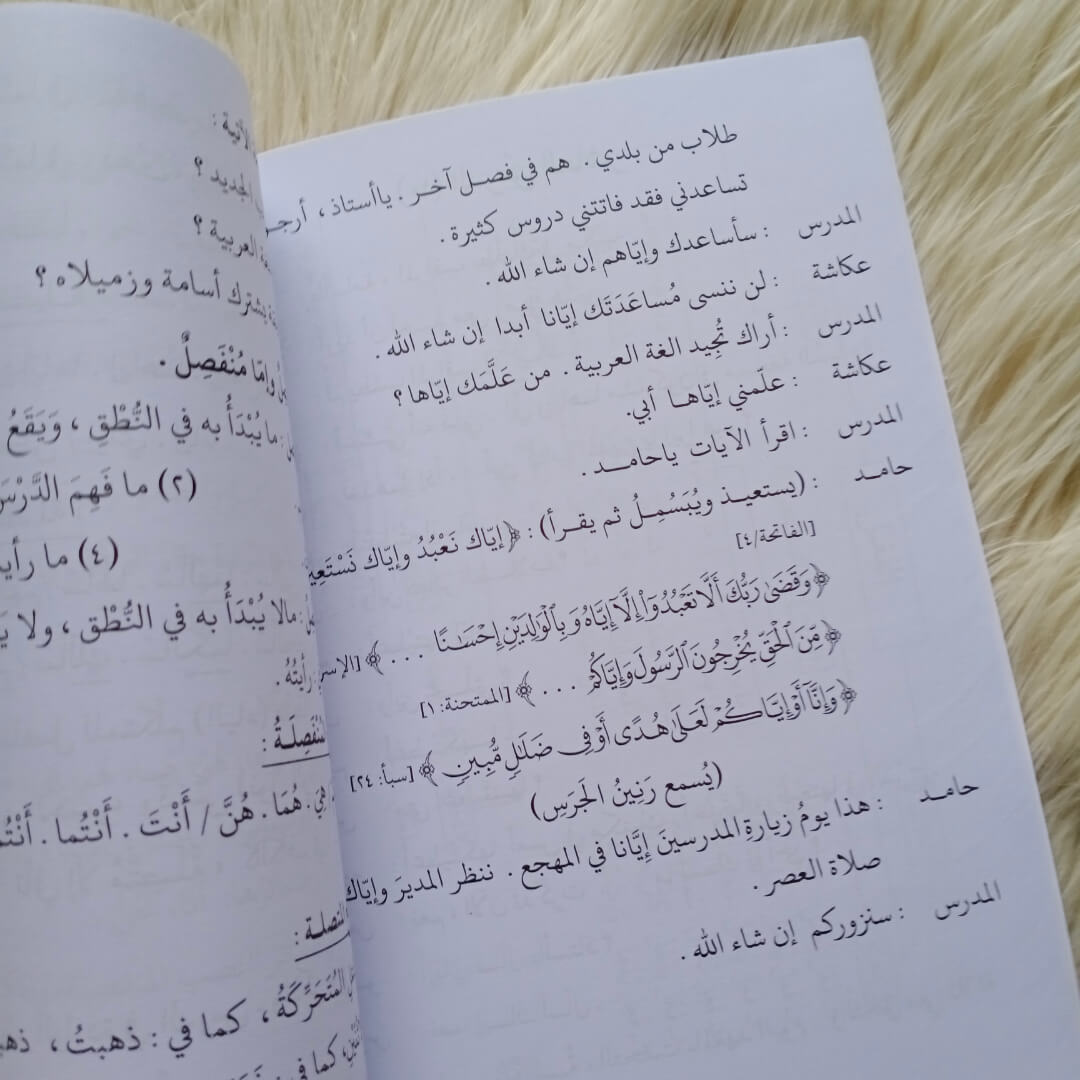 طلاب من بلدي . هم في فصل آخر . ياأستاذ ،
تساعدني فقد فاتتني دروس كثيرة .
المدرس : سأساعدك وإيّاهم إن شاء الله .
عكاشة : لن ننسى مُساعَدَتَك إيّانا أبدا إن شاء الله .
المدرس : أراك تُجِيد الغة العربية . من عَلَّمَك إيّاها ؟
عكاشة : علّمني إيّاهـا أبي.
المدرس : اقرأ الآيات ياحامـد .
حامـد : (يستعيـذ ويُبَسْمِـلُ ثم يقـرأ) : ﴿إيّاك نَعْبُدُ وإيّاك
[الفاتحة/٤]
﴿وَقَضَىٰ رَبُّكَ أَلَّا تَعْبُدُوٓاْ إِلَّآ إِيَّاهُ وَبِٱلْوَٰلِدَيْنِ إِحْسَـٰنًا . . . ﴾
﴿مِّنَ ٱلْحَقِّ يُخْرِجُونَ ٱلرَّسُولَ وَإِيَّاكُمْ . . . ﴾ [الممتحنة: ١]
﴿وَإِنَّآ أَوْ إِيَّاكُمْ لَعَلَىٰ هُدًى أَوْ فِى ضَلَـٰلٍ مُّبِينٍ ﴾ [سبأ: ٢٤]
(يُسمع رَنِينُ الجَرَسِ)
حامـد : هذا يومُ زيارةِ المدرسينَ إيَّانا في المهجع . ننظر المديرَ وإيّاك
صلاة العصر .
المدرس : سنزوركم إن شاء الله .
الجديد ؟
العربية ؟
يشترك أسامة وزميلاه ؟
وإمّا مُنْفَصِلٌ .
مايُبْدَأُ به في النُّطْقِ ، وَيَقَعُ
(٢) ما فَهِمَ الدَّرْسَ
(٤) ما
مالا يُبْدَأُ به في النُّطْق ، ولا
رأيتُهُ .
هُمَا . هُنَّ / أَنْتَ . أَنْتُما .
المُتَحَرِّكَةُ ، كما في : ذهبتُ ،
كما في :